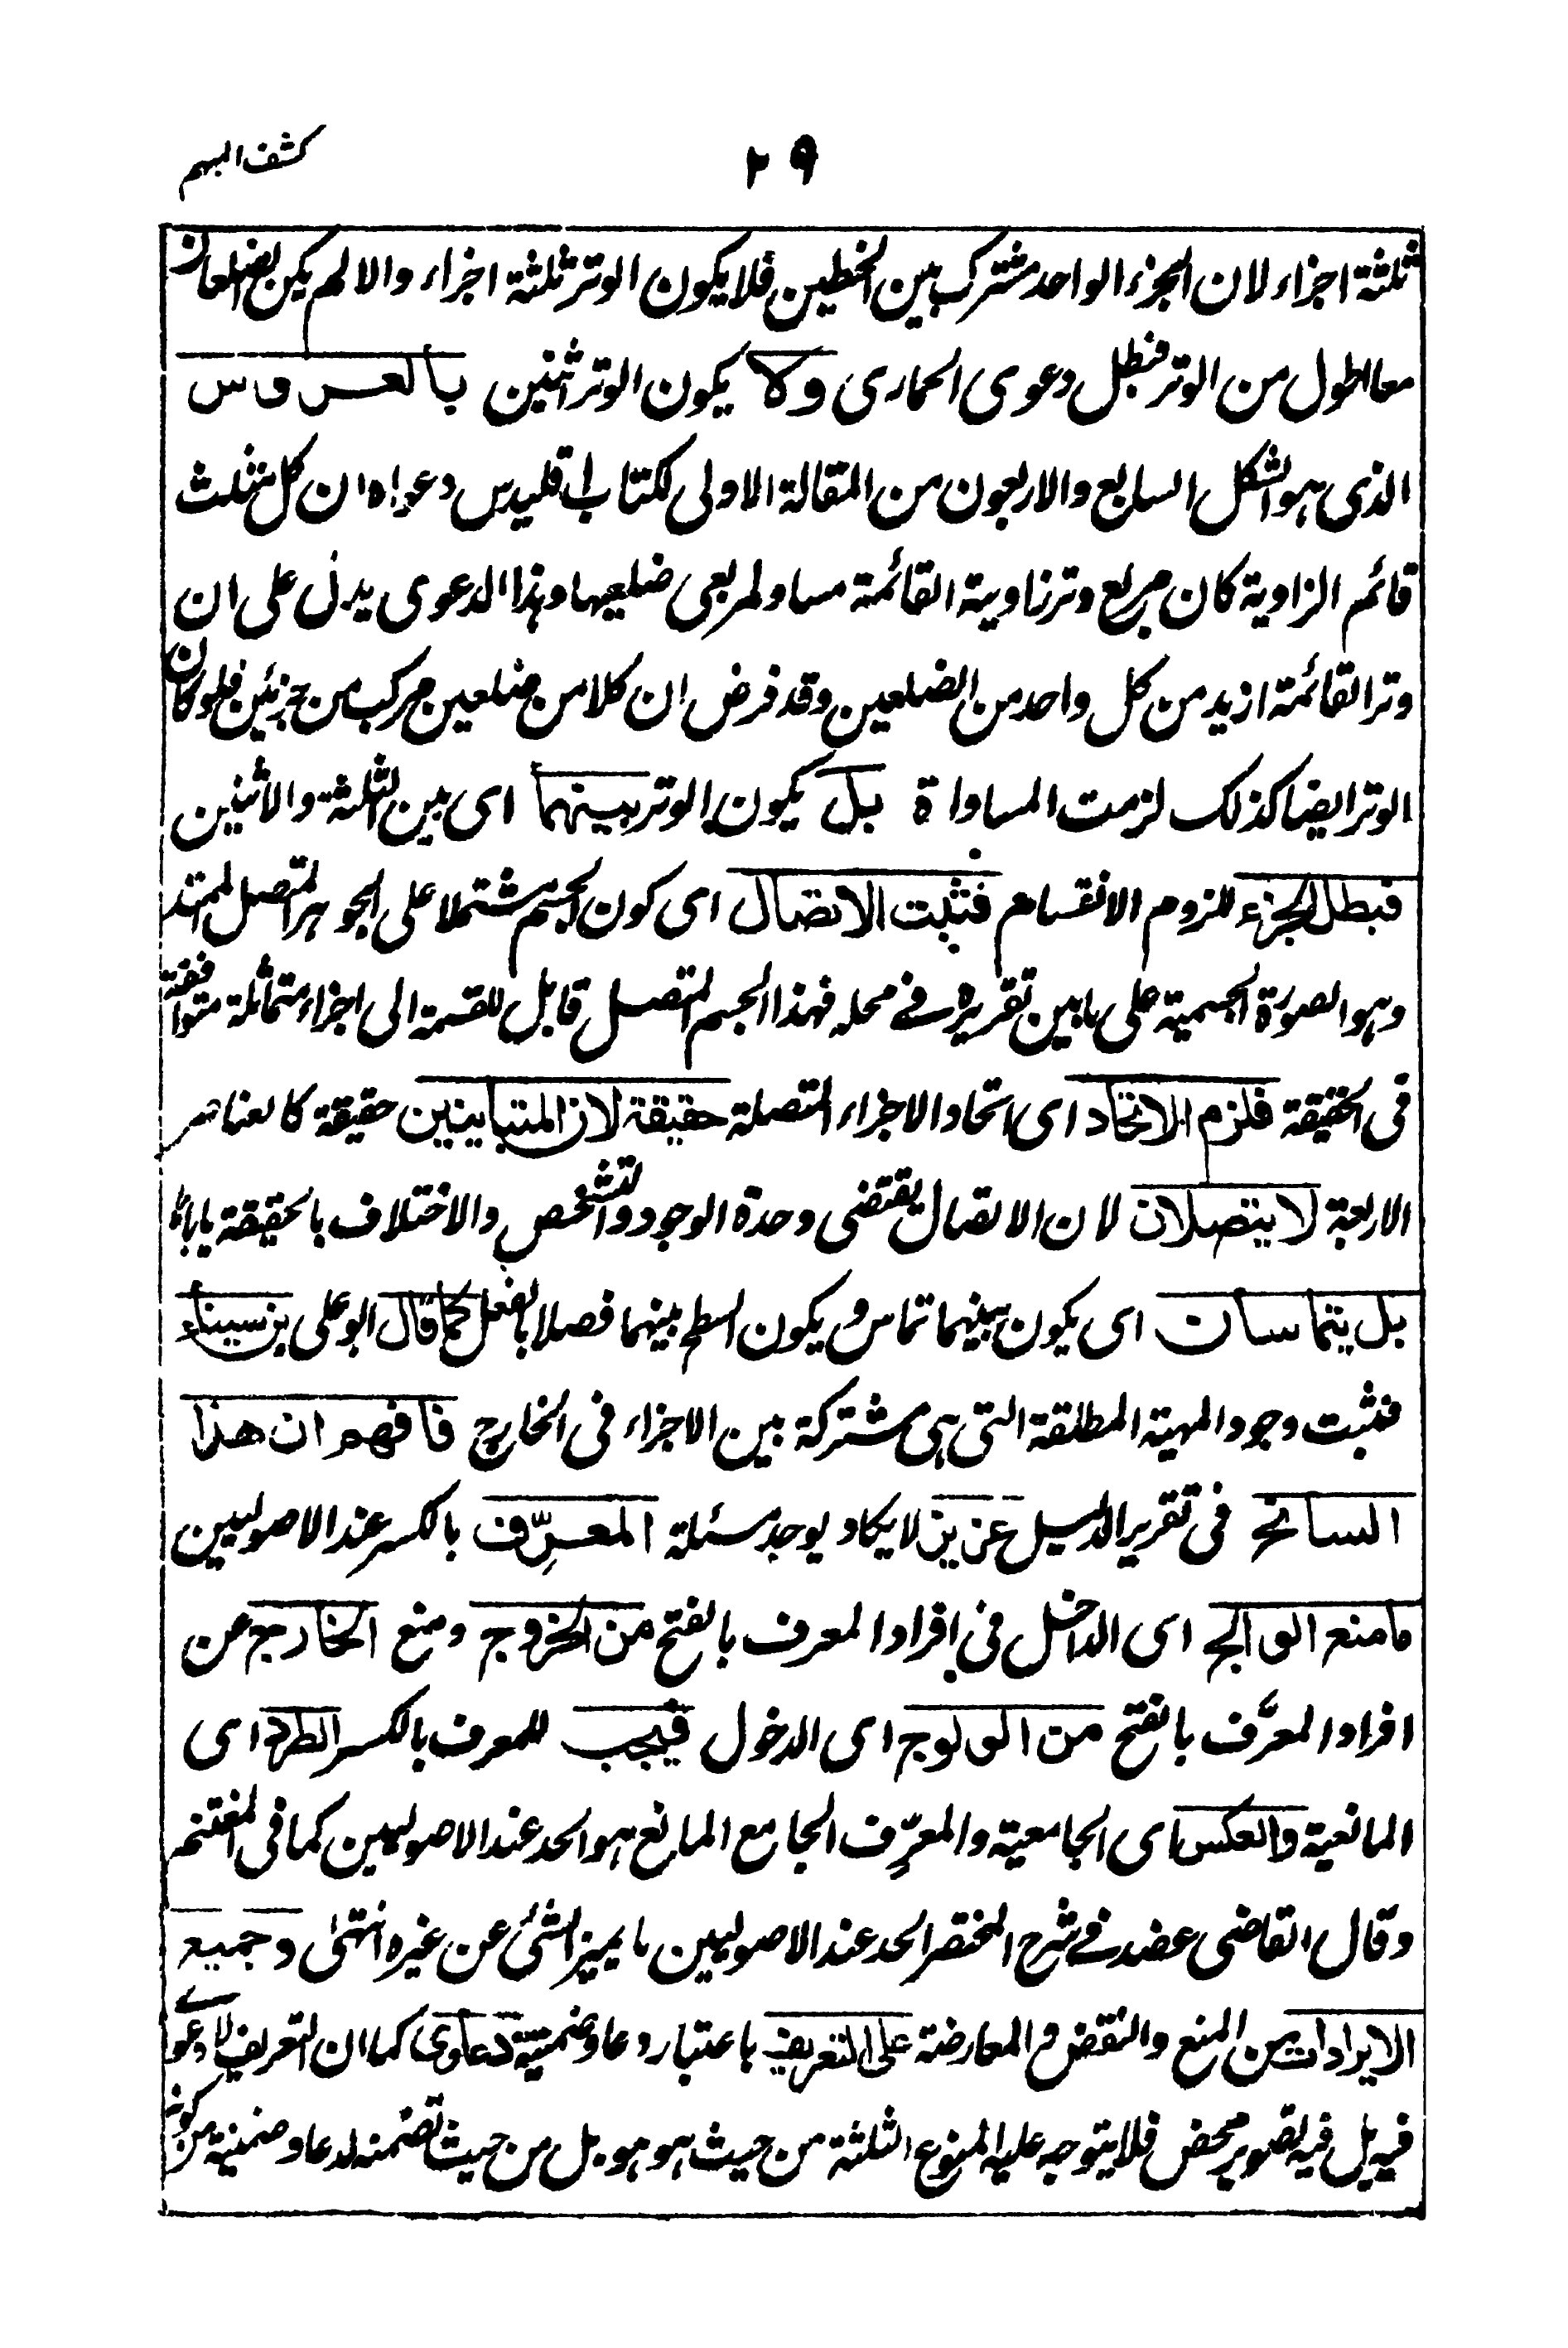 ٢٩
كشف المبهم
ثلثة اجزاء لان الجزء الواحد مشترك بين الخطين فلا يكون الوتر ثلثة اجزاء والا لم يكن الضلعان
معا اطول من الوتر فبطل دعوى الحمارى ولا يكون الوتر اثنين بالعروس
الذى هو الشكل السابع والاربعون من المقالة الاولى لكتاب اقليدس دعواه ان كل مثلث
قائم الزاوية كان مربع وتر زاويته القائمة مساو لمربعى ضلعيها وهذا الدعوى يدل على ان
وتر القائمة ازيد من كل واحد من الضلعين وقد فرض ان كلا من ضلعين مركب من جزئين فلو كان
الوتر ايضا كذلك لزمت المساواة بل يكون الوتر بينهما اى بين الثلثة والاثنين
فبطل الجزء للزوم الانقسام فثبت الاتصال اى كون الجسم مشتملا على الجوهر المتصل الممتد
وهو الصورة الجسمية على ما بين تقريره في محله فهذا الجسم المتصل قابل للقسمة الى اجزاء متماثلة متوافقة
فى الحقيقة فلزم الاتحاد اى اتحاد الاجزاء المتصلة حقيقة لان المتباينين حقيقة كالعناصر
الاربعة لا يتصلان لان الاتصال يقتضى وحدة الوجود والتشخص والاختلاف بالحقيقة ياباها
بل يتماسان اى يكون بينهما تماس و يكون السطح بينهما فصلا بالفعل كما قال ابو على بن سيناء
فثبت وجود المهية المطلقة التى هى مشتركة بين الاجزاء فى الخارج فافهم ان هذا
السانح فى تقرير الدليل عزيز لا يكاد يوجد مسئلة المعرِّف بالكسر عند الاصوليين
ما منع الوالج اى الداخل فى افراد المعرف بالفتح من الخروج ومنع الخارج عن
افراد المعرَّف بالفتح من الولوج اى الدخول فيجب للمعرف بالكسر الطرد اى
المانعية والعكس اى الجامعية والمعرِّف الجامع المانع هو الحد عند الاصوليين كما فى المغتنم
وقال القاضى عضد في شرح المختصر الحد عند الاصوليين ما يميز الشئ عن غيره انتهى وجميع
الايرادات من المنع والنقض و المعارضة على التعريف باعتبار دعاو ضمنية دعاوى كما ان التعريف لا دعوے
فيه بل فيه تصوير محض فلا يتوجه عليه المنوع الثلثة من حيث هو هو بل من حيث تضمنه لدعاو ضمنية من كونه